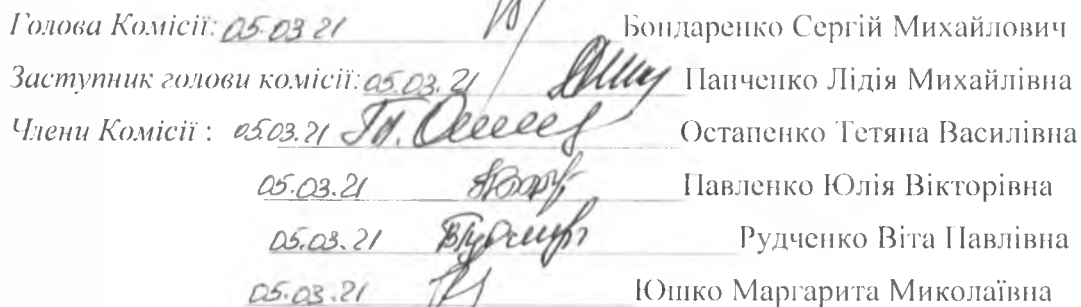 Голова Комісії: 05.03 21 Бондаренко Сергій Михайлович
Заступник голови комісії: 05.03. 21 Панченко Лідія Михайлівна
Члени Комісії : 05.03. 21 Остапенко Тетяна Василівна
05.03.21 Павленко Юлія Вікторівна
05.03.21 Рудченко Віта Павлівна
05.03.21 Юшко Маргарита Миколаївна